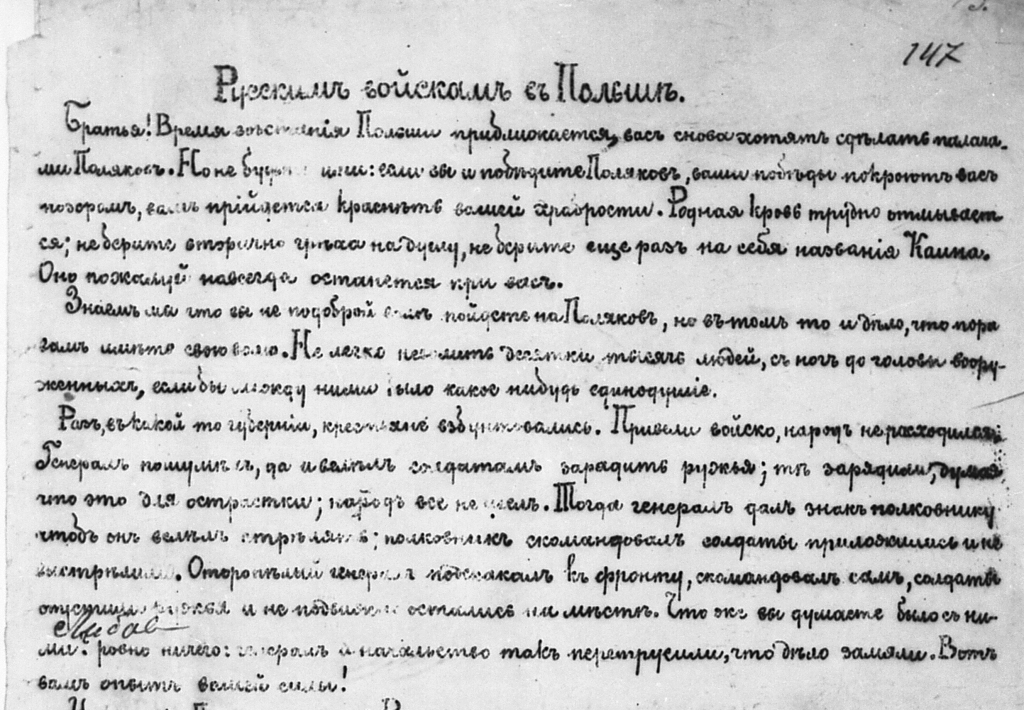 147
Русскимъ войскамъ въ Польшѣ.
Братья! Время возстанія Польши приближается, васъ снова хотятъ сдѣлать палача-
ми Поляковъ. Но не будьте ими: если вы и побѣдите Поляковъ, ваши побѣды покроютъ васъ
позоромъ, вамъ прійдется краснѣть вашей храбрости. Родная кровь трудно отмывает-
ся; не берите вторично грѣха на душу, не берите еще разъ на себя названія Каина.
Оно пожалуй навсегда останется при васъ.
Знаемъ мы что вы не по доброй волѣ пойдете на Поляковъ, но въ томъ то и дѣло, что пора
вамъ имѣть свою волю. Не легко неволить десятки тысячъ людей, съ ногъ до головы воору-
женныхъ, если бы между ними было какое нибудь единодушіе.
Разъ, въ какой то губерніи, крестьяне взбунтовались. Привели войско, народъ не расходился.
Генералъ пошумѣлъ, да и велѣлъ солдатамъ зарядить ружья; тѣ зарядили, думая,
что это для острастки; народъ все не шелъ. Тогда генералъ далъ знакъ полковнику
чтобъ онъ велѣлъ стрѣлять; полковникъ скомандовалъ солдаты приложились и не
выстрѣлили. Оторопѣлый генералъ подскакалъ къ фронту, скомандовалъ самъ, солдаты
опустили ружья и не подвижно остались на мѣстѣ. Что же вы думаете было съ ни-
ми? ровно ничего: генералъ и начальство такъ перетрусили, что дѣло замяли. Вотъ
вамъ опытъ вашей силы!